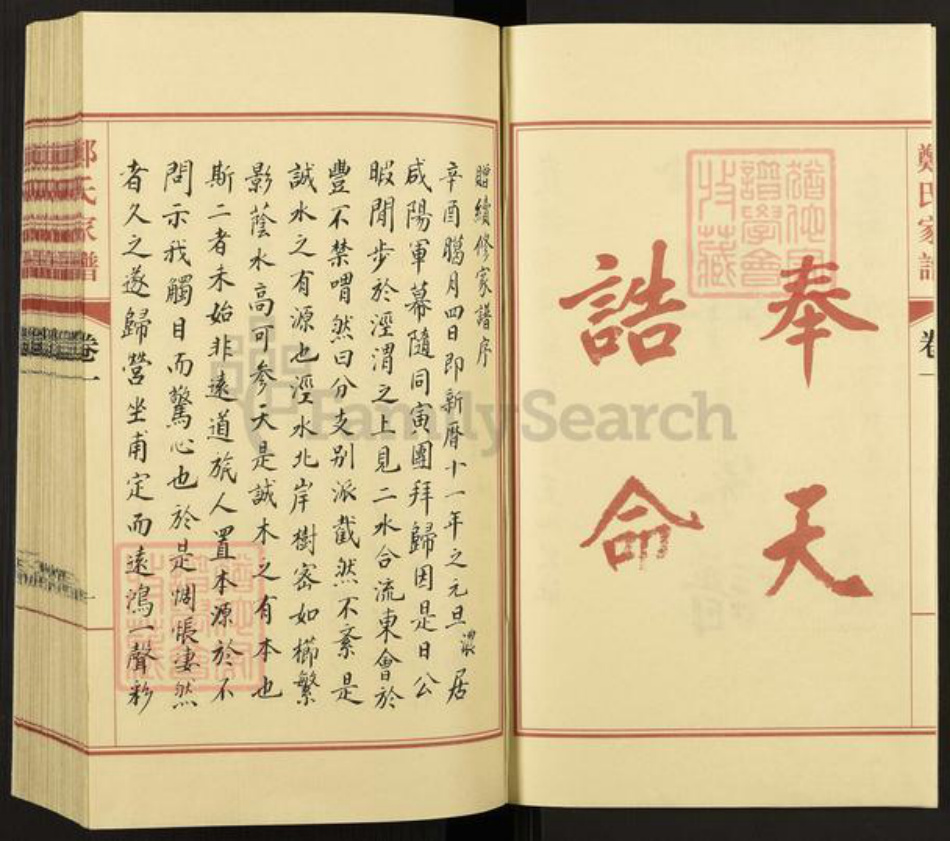 奉天
誥命
鄭氏家譜
卷一
贈續修家譜序
辛酉臈月四日即新曆十一年之元旦濲居
咸陽軍幕隨同寅團拜歸因是日公
暇閒步於涇渭之上見二水合流東會於
豐不禁喟然曰分支别派截然不紊是
誠水之有源也涇水北岸樹密如櫛繁
影蔭水高可參天是誠木之有本也
斯二者未始非遠道旅人置本源於不
問示我觸目而驚心也於是惆悵凄然
者久之遂歸營坐甫定而遠鴻一聲彩
鄭氏家譜
卷一
FamilySearch